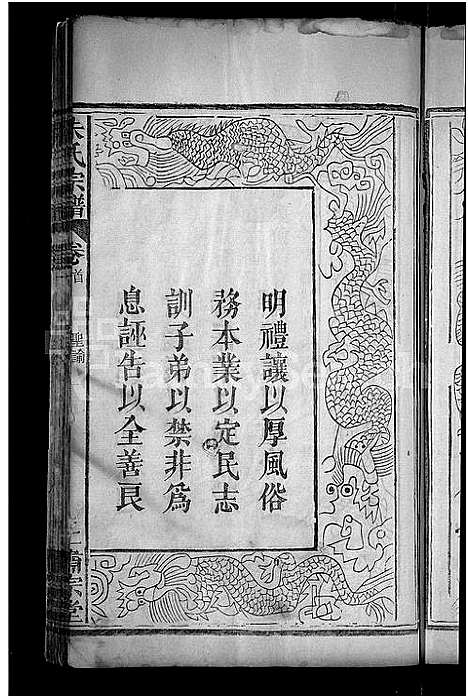 明禮讓以厚風俗
務本業以定民志
訓子弟以禁非為
息誣告以全善良
朱氏宗譜
卷首
聖諭